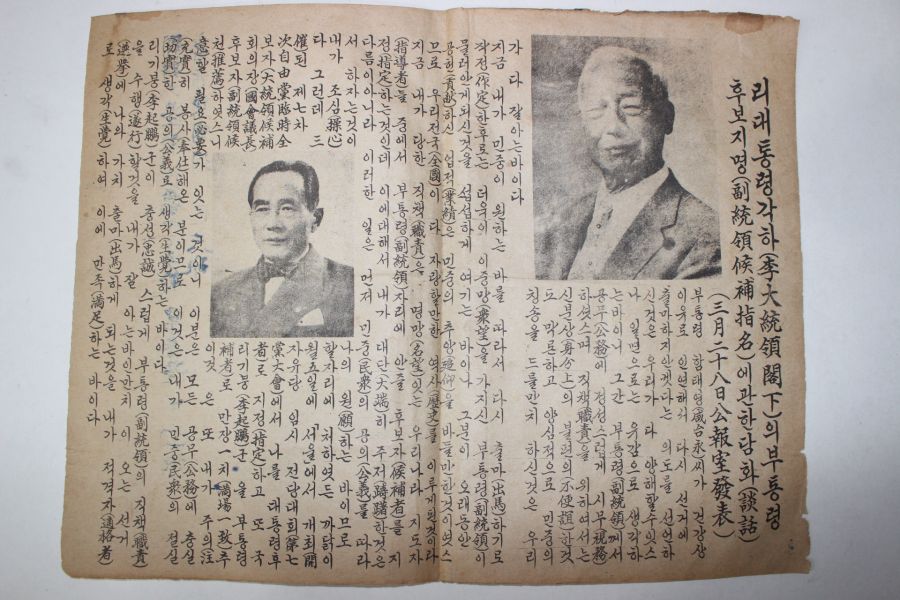 리대통령각하(李大統領閣下)의부통령
후보지명(副統領候補指名)에관한담화(談話)
(三月二十八日公報室發表)
부통령 함태영(咸台永)씨가 건강상
이유로 인연해서 다시는 선거에
출마하지안켓다는 의도를 선언하
신것은 우리가 다 양해할수잇스
나 일면으로는 유감으로 생각하
는바이니 그간 부통령(副統領)께서
공무(公務)에 정성스럽게 시무(視務)
하섯스며 직책(職責)을 위하여서는
신분상(身分上)의 불편의(不便誼)한것
도 막론하고 양심적으로 민중의
칭송을 드를만치 하신것은 우리
가 다 잘아는바이다
지금 내가 민중이 원하는 바를 따라서 다시 출마(出馬)하기로
작정(作定)한후로는 더욱이 이중망(衆望)을 가지신 부통령(副統領)이
물러안게되신것을 섭섭하게 여기는 바이나 그분이 오래동안
공헌(貢献)하신 업적(業績)은 민중의 추앙(追仰)을 바들만한것이엇스
므로 우리전국(全國)이 다 자랑할만한 역사(歷史)를 이루게된것이라
지금 내가 당한 직책(職責)은 명망(名望)잇는 우리나라 지도자
(指導者)들 중에서 부통령(副統領)자리에 안즐 후보자(候補者)를 지
정(指定)하는것인데 이에대해서 내가 대단(大端)히 주저(躊躇)한것은
다름이아니라 이러한 일은 먼저 민중(民衆)의 공의(公義)를 따라
서 하자는것이 나의 원(願)하는 바이므로
내가 조심(操心) 할자리에 처하엿든 까닭이
다 그런데 三월五일에 서울에서 개최(開
催)된 제七차 자유당 임시 전당대회(第七
次自由黨臨時全黨大會)에서 나를 대통령후
보자(大統領候補者)로 지정(指定)하고 또 국
회의장(國會議長)리기붕(李起鵬)군을 부통령
후보자(副統領候補者)로 만장一치(滿場一致)추
천(推薦)하엿스니 이것은 또 내가 주의(注
意)할 필요(必要)가 잇는 것이니 이분은 모든 공무(公務)에 충실
(充實)히 봉사(奉仕)해온 분이므로 이것은 내가 민중(民衆)의 절실
(切實)한 공의(公義)로 생각(生覺)하는 바이다
리기붕(李起鵬)군이 충성(忠誠)스럽게 부통령(副統領)의 직책(職責
)을 수행(遂行)할것을 내가 잘 아는바인만치 이 오는 선거
(選擧)에 나와 가치 출마(出馬)하게 되는것을 내가 적격자(適格者)
로 생각(生覺)하여 이에 만족(滿足)하는 바이다